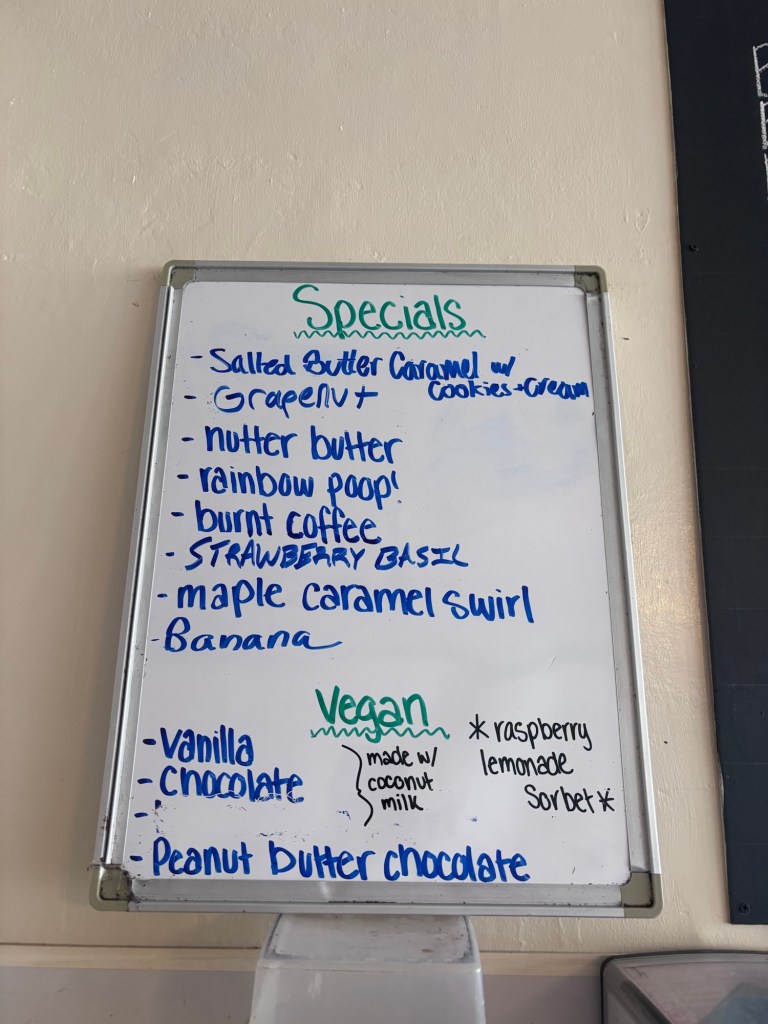 Specials
- Salted Butter Caramel w/
Cookies + Cream
- Grapenut
- nutter butter
- rainbow poop!
- burnt coffee
- STRAWBERRY BASIL
- maple caramel swirl
- Banana
Vegan
- Vanilla
- Chocolate
-
- Peanut butter chocolate
made w/
coconut
milk
* raspberry
lemonade
Sorbet *